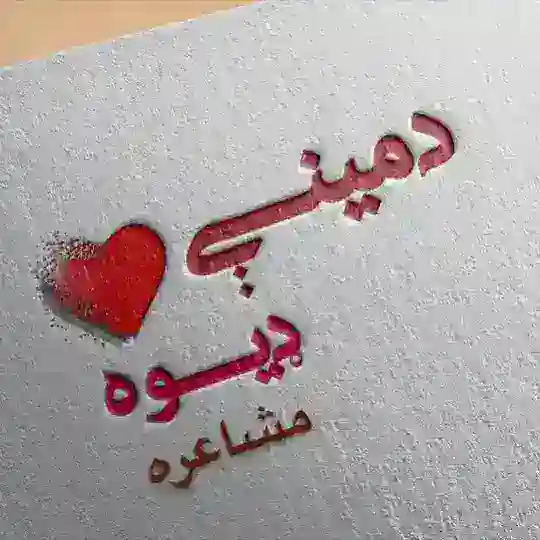 دمینې
ډیوه
مشاعره